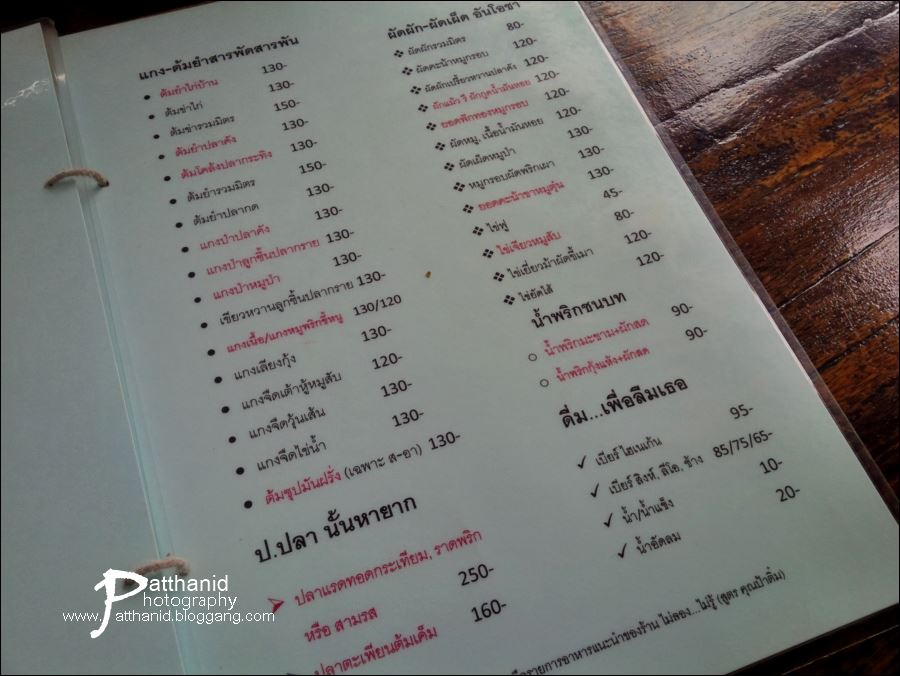 แกง-ต้มยำสารพัดสารพัน
ต้มยำไก่บ้าน 130-
ต้มข่าไก่ 130-
ต้มข่ารวมมิตร 150-
ต้มยำปลาคัง 130-
ต้มโคล้งปลากระทิง 130-
ต้มยำรวมมิตร 150-
ต้มยำปลากด 130-
แกงป่าปลาคัง 130-
แกงป่าลูกชิ้นปลากราย 130-
แกงป่าหมูป่า 130-
เขียวหวานลูกชิ้นปลากราย 130-
แกงเนื้อ/แกงหมูพริกขี้หนู 130/120
แกงเลียงกุ้ง 130-
แกงจืดเต้าหู้หมูสับ 120-
แกงจืดวุ้นเส้น 130-
แกงจืดไข่น้ำ 130-
ต้มซุปมันฝรั่ง (เฉพาะ ส-อา) 130-
ป.ปลา นั้นหายาก
ปลาแรดทอดกระเทียม, ราดพริก
หรือ สามรส 250-
ปลาตะเพียนต้มเค็ม 160-
ผัดผัก-ผัดเผ็ด อันโอชา
ผัดผักรวมมิตร 80-
ผัดคะน้าหมูกรอบ 120-
ผัดผักเปรี้ยวหวานปลาคัง 120-
ผักแม้ว รึ ผักกูดน้ำมันหอย 120-
ยอดฟักทองหมูกรอบ 120-
ผัดหมู, เนื้อน้ำมันหอย 120-
ผัดเผ็ดหมูป่า 130-
หมูกรอบผัดพริกเผา 130-
ยอดคะน้าขาหมูตุ๋น 130-
ไข่ฟู 45-
ไข่เจียวหมูสับ 80-
ไข่เยี่ยวม้าผัดขี้เมา 120-
ไข่ยัดไส้ 120-
น้ำพริกชนบท
น้ำพริกมะขาม+ผักสด 90-
น้ำพริกกุ้งแห้ง+ผักสด 90-
ดื่ม...เพื่อลืมเธอ
เบียร์ ไฮเนเก้น 95-
เบียร์ สิงห์, ลีโอ, ช้าง 85/75/65-
น้ำ/น้ำแข็ง 10-
น้ำอัดลม 20-
คือรายการอาหารแนะนำของร้าน ไม่ลอง...ไม่รู้ (สูตร คุณป้าติ๋ม)
Patthanid
Photography
www.Patthanid.bloggang.com